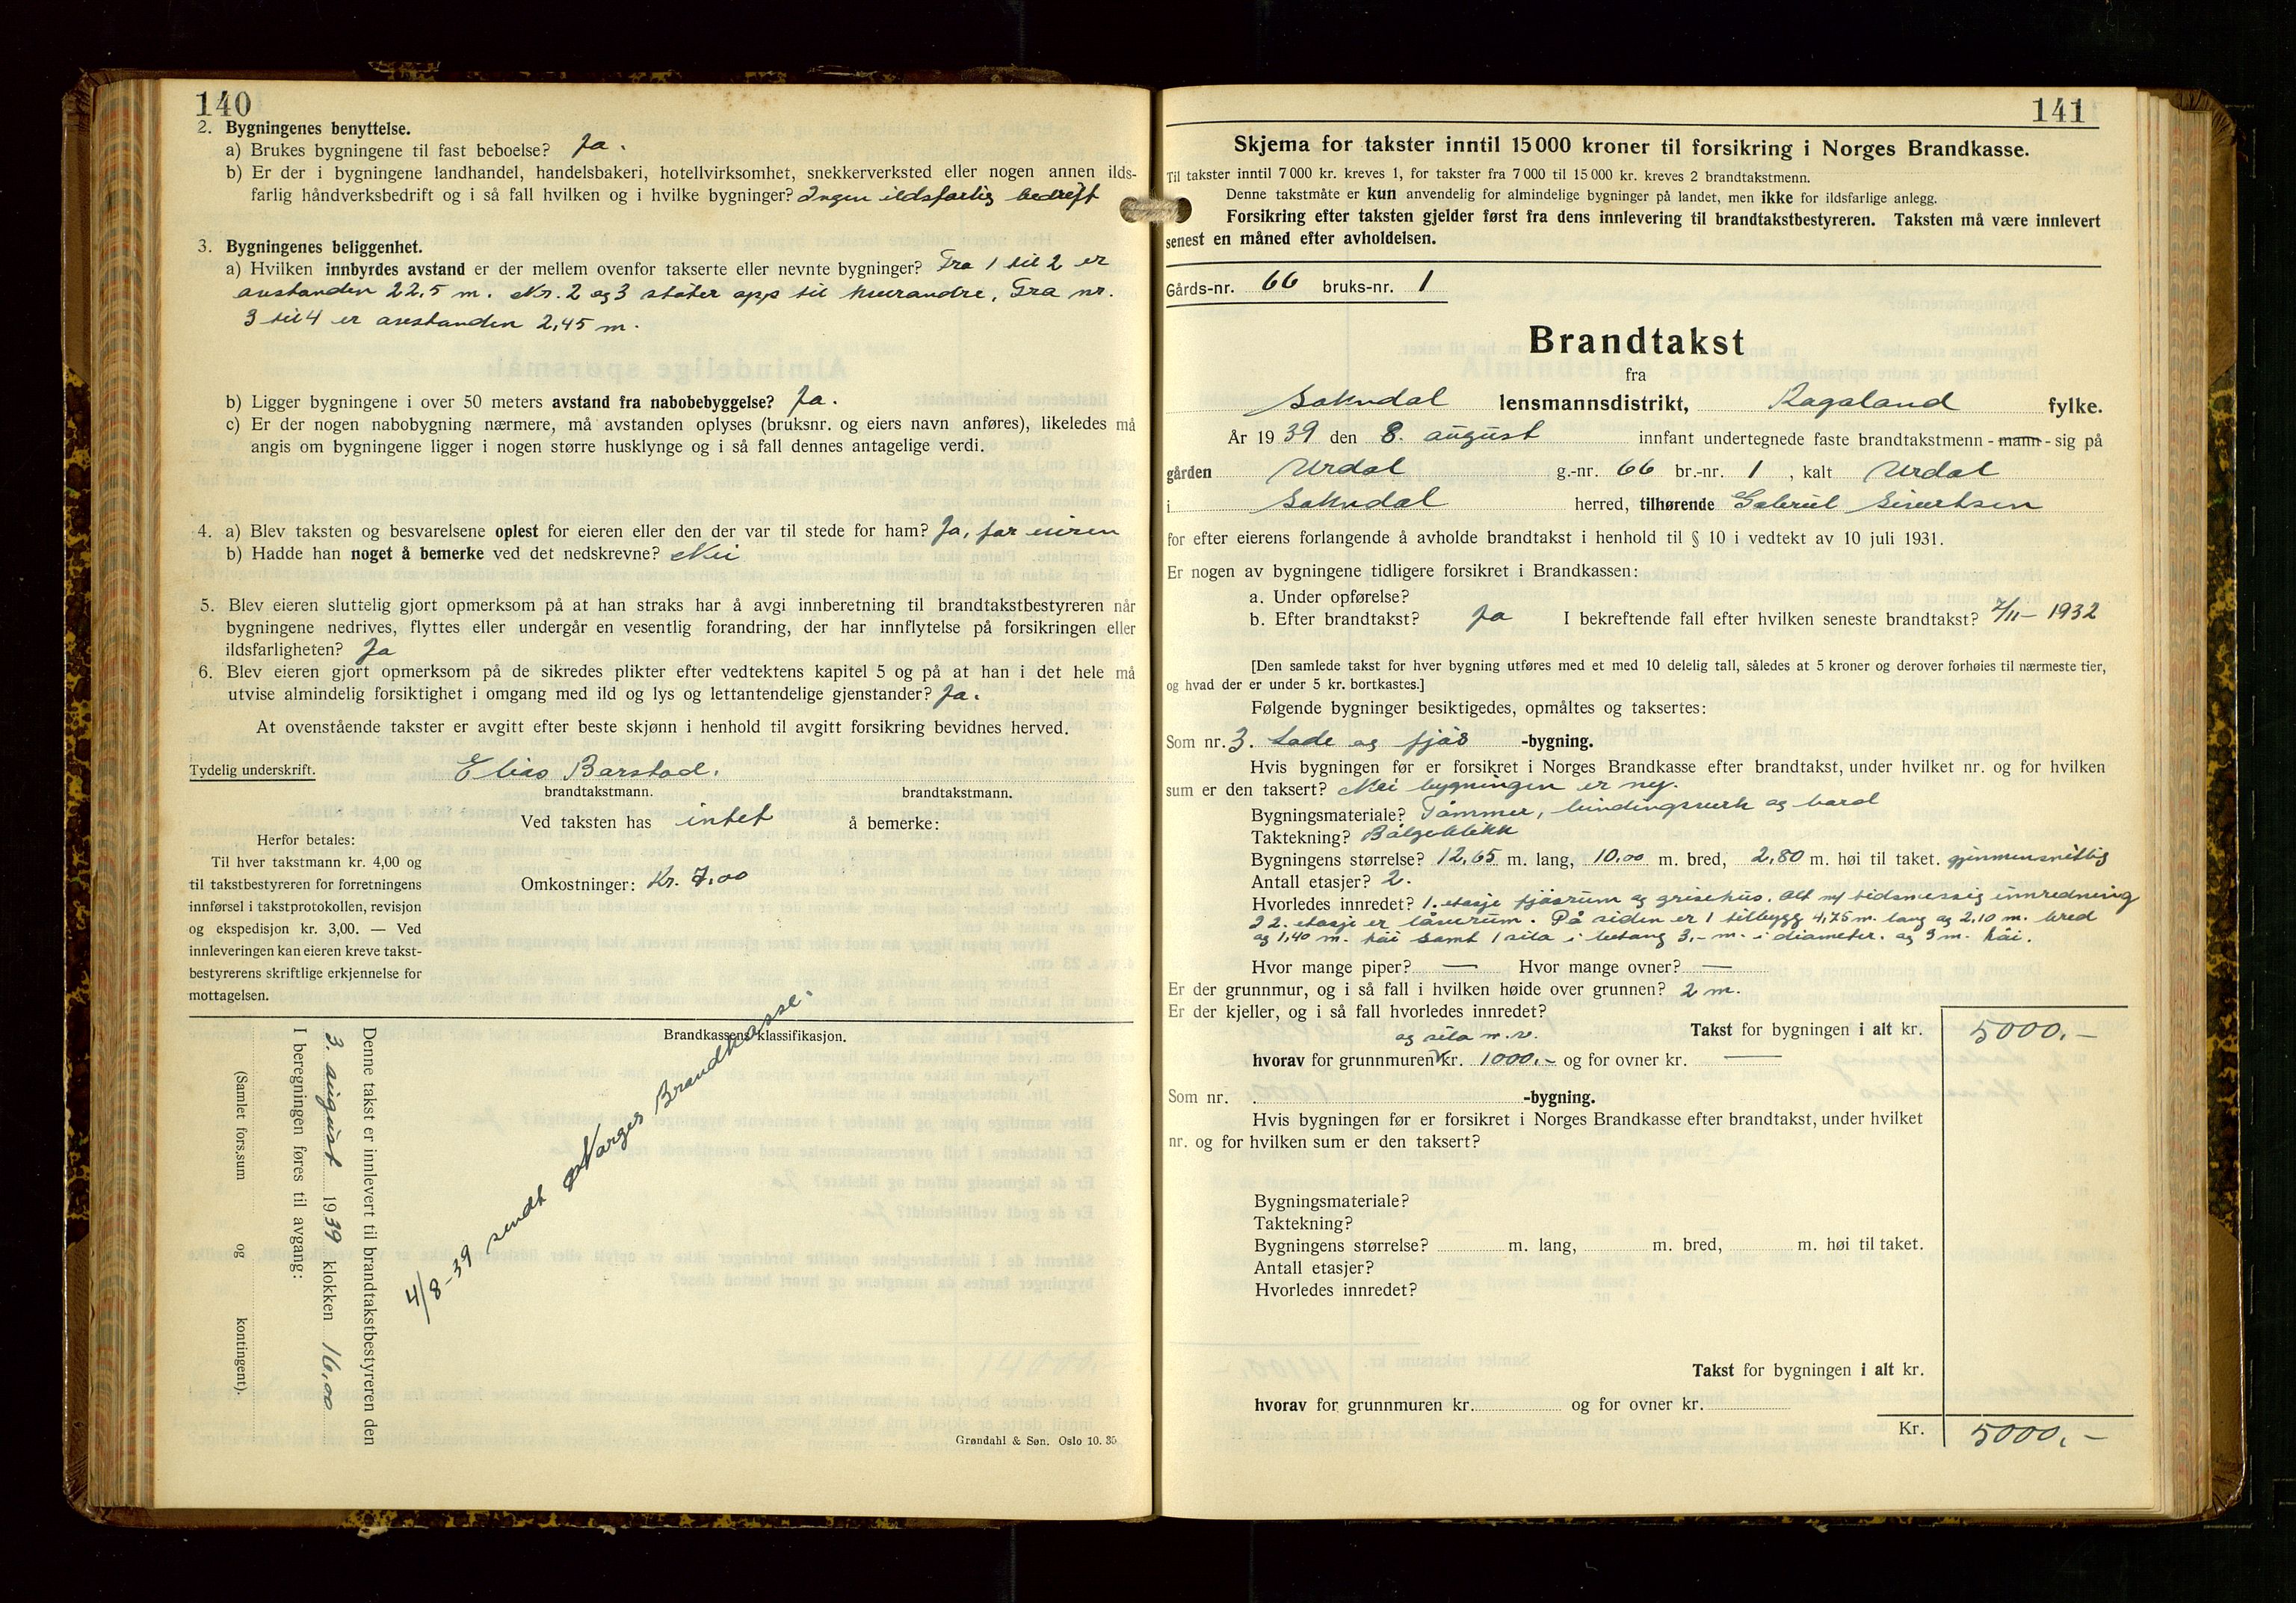 140
2. Bygningenes benyttelse.
a) Brukes bygningene til fast beboelse? Ja.
b) Er der i bygningene landhandel, handelsbakeri, hotellvirksomhet, snekkerverksted eller nogen annen ilds-
farlig håndverksbedrift og i så fall hvilken og i hvilke bygninger? Ingen ildsfarlig bedrift
3. Bygningenes beliggenhet.
a) Hvilken innbyrdes avstand er der mellem ovenfor takserte eller nevnte bygninger? Fra 1 til 2 er
avstanden 22,5 m. Nr. 2 og 3 støter opp til hverandre. Fra nr.
3 til 4 er avstanden 2,45 m.
b) Ligger bygningene i over 50 meters avstand fra nabobebyggelse? Ja.
c) Er der nogen nabobygning nærmere, må avstanden oplyses (bruksnr. og eiers navn anføres), likeledes må
angis om bygningene ligger i nogen større husklynge og i så fall dennes antagelige verdi.
4. a) Blev taksten og besvarelsene oplest for eieren eller den der var til stede for ham? Ja, for eieren
b) Hadde han noget å bemerke ved det nedskrevne? Nei
5. Blev eieren sluttelig gjort opmerksom på at han straks har å avgi innberetning til brandtakstbestyreren når
bygningene nedrives, flyttes eller undergår en vesentlig forandring, der har innflytelse på forsikringen eller
ildsfarligheten? Ja
6. Blev eieren gjort opmerksom på de sikredes plikter efter vedtektens kapitel 5 og på at han i det hele må
utvise almindelig forsiktighet i omgang med ild og lys og lettantendelige gjenstander? Ja.
At ovenstående takster er avgitt efter beste skjønn i henhold til avgitt forsikring bevidnes herved.
Tydelig underskrift. Elias Barstad.
brandtakstmann. brandtakstmann.
Ved taksten has intet å bemerke:
Herfor betales:
Til hver takstmann kr. 4,00 og
til takstbestyreren for forretningens
innførsel i takstprotokollen, revisjon
og ekspedisjon kr. 3,00. — Ved
innleveringen kan eieren kreve takst-
bestyrerens skriftlige erkjennelse for
mottagelsen.
Omkostninger: Kr. 7,00
Brandkassens klassifikasjon.
4/8-39 sendt Norges Brandkasse.
Denne takst er innlevert til brandtakstbestyreren den
3. august 1939 klokken 16,00
I beregningen føres til avgang:
(Samlet fors.sum og kontingent).
Grøndahl & Søn. Oslo 10. 35
141
Skjema for takster inntil 15 000 kroner til forsikring i Norges Brandkasse.
Til takster inntil 7 000 kr. kreves 1, for takster fra 7 000 til 15 000 kr. kreves 2 brandtakstmenn.
Denne takstmåte er kun anvendelig for almindelige bygninger på landet, men ikke for ildsfarlige anlegg.
Forsikring efter taksten gjelder først fra dens innlevering til brandtakstbestyreren. Taksten må være innlevert
senest en måned efter avholdelsen.
Gårds-nr. 66 bruks-nr. 1
Brandtakst
fra
Sokndal lensmannsdistrikt, Rogaland fylke.
År 1939 den 8. august innfant undertegnede faste brandtakstmenn - mann - sig på
gården Urdal g.-nr. 66 br.-nr. 1, kalt Urdal
i Sokndal herred, tilhørende Gabriel Sivertsen
for efter eierens forlangende å avholde brandtakst i henhold til § 10 i vedtekt av 10 juli 1931.
Er nogen av bygningene tidligere forsikret i Brandkassen:
a. Under opførelse?
b. Efter brandtakst? Ja I bekreftende fall efter hvilken seneste brandtakst? 7/11- 1932
[Den samlede takst for hver bygning utføres med et med 10 delelig tall, således at 5 kroner og derover forhøies til nærmeste tier,
og hvad der er under 5 kr. bortkastes.]
Følgende bygninger besiktigedes, opmåltes og taksertes:
Som nr. 3. Lade og fjøs -bygning.
Hvis bygningen før er forsikret i Norges Brandkasse efter brandtakst, under hvilket nr. og for hvilken
sum er den taksert? Nei bygningen er ny.
Bygningsmateriale? Tømmer, bindingsverk og bord
Taktekning? Bølgeblikk
Bygningens størrelse? 12,65 m. lang, 10,00 m. bred, 2,80 m. høi til taket. gjennemsnittlig
Antall etasjer? 2.
Hvorledes innredet? 1. etasje fjøsrum og grisehus. Alt m/ tidsmessig innredning
I 2. etasje er låverum. På siden er 1 tilbygg 4,75 m. lang og 2,10 m. bred
og 1,40 m. høi samt 1 silo i betong 3,- m. i diameter. og 3 m. høi.
Hvor mange piper? — Hvor mange ovner? —
Er der grunnmur, og i så fall i hvilken høide over grunnen? 2 m.
Er der kjeller, og i så fall hvorledes innredet?
Takst for bygningen i alt kr. 5000,-
og silo m.v.
hvorav for grunnmuren kr. 1000,- og for ovner kr. —
Som nr. -bygning.
Hvis bygningen før er forsikret i Norges Brandkasse efter brandtakst, under hvilket
nr. og for hvilken sum er den taksert?
Bygningsmateriale?
Taktekning?
Bygningens størrelse? m. lang, m. bred, m. høi til taket.
Antall etasjer?
Hvorledes innredet?
Takst for bygningen i alt kr.
hvorav for grunnmuren kr. og for ovner kr.
Kr. 5000,-